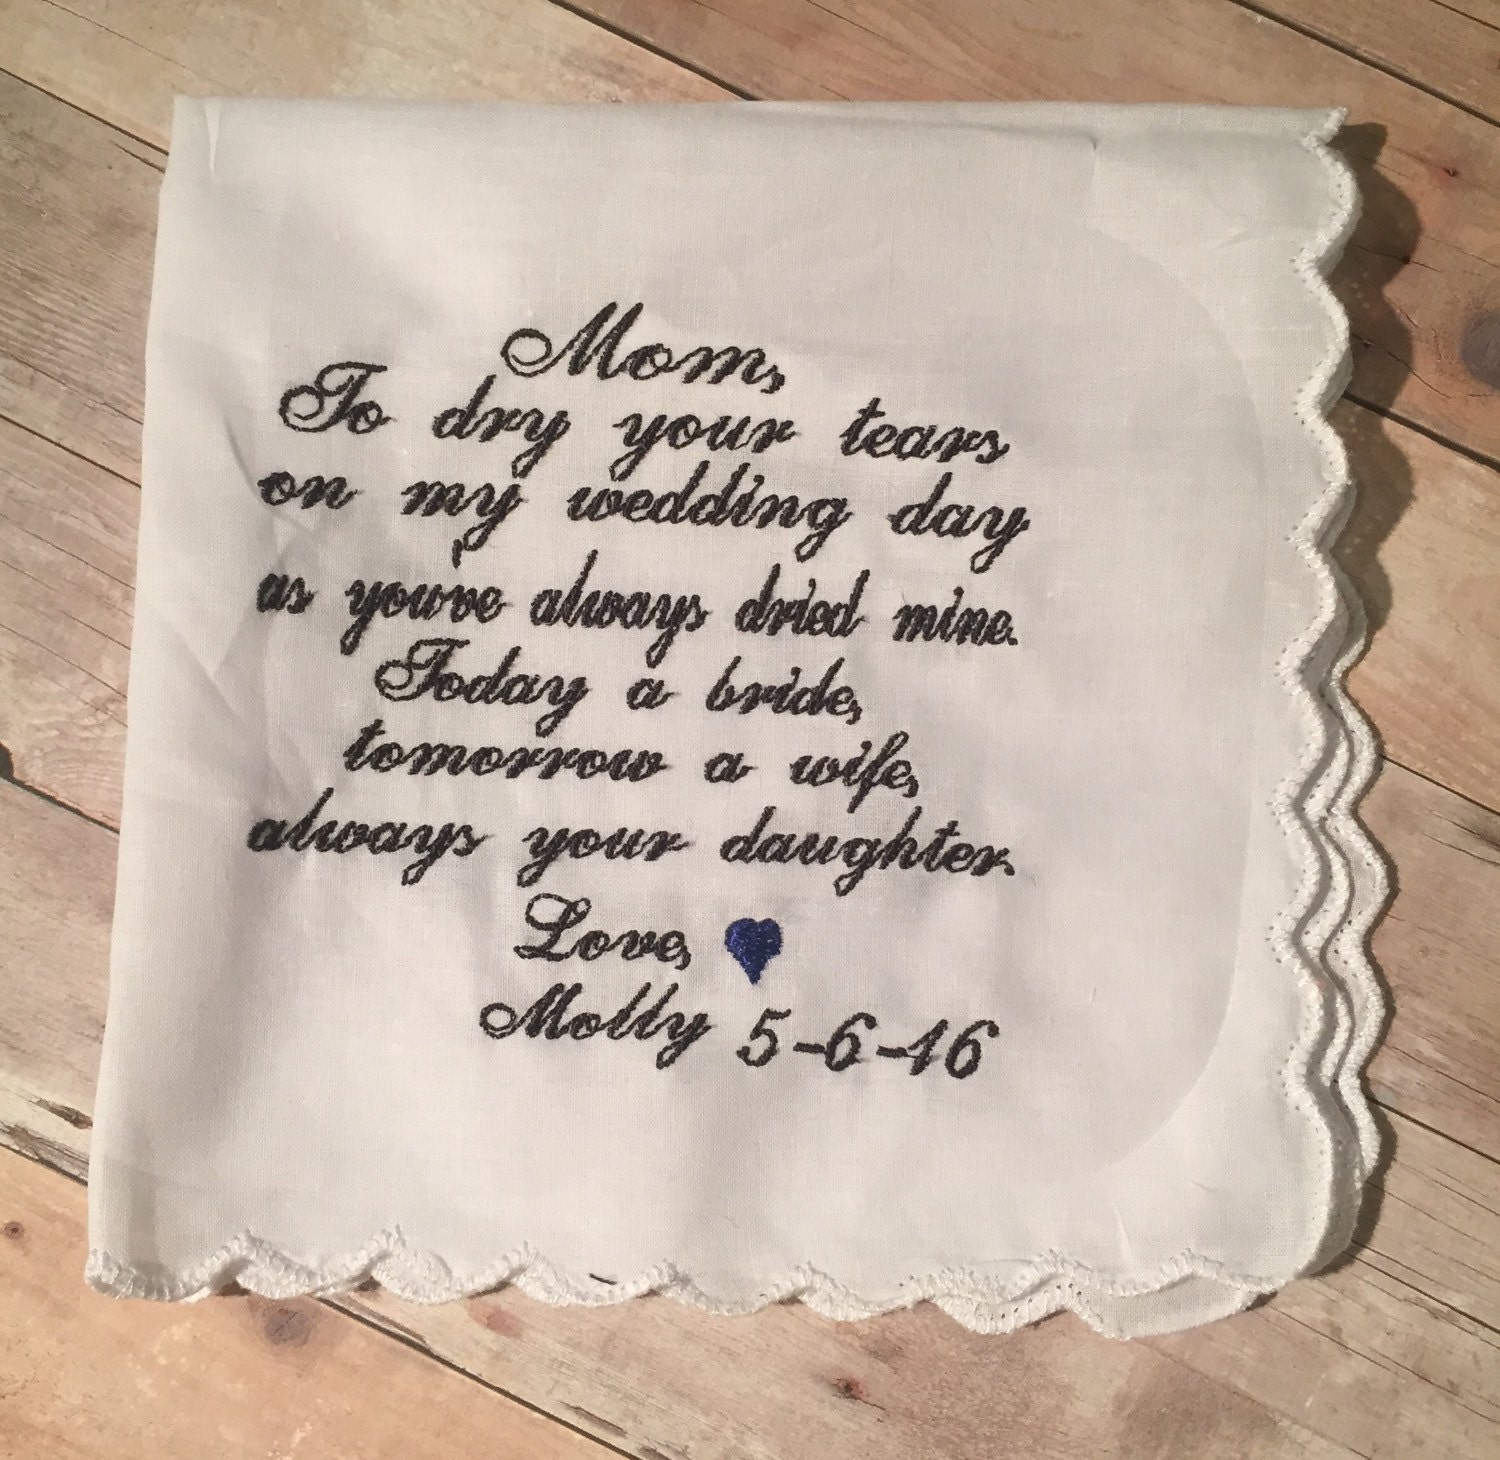 Mom,
To dry your tears
on my wedding day
as you've always dried mine.
Today a bride,
tomorrow a wife,
always your daughter.
Love,
Molly 5-6-16